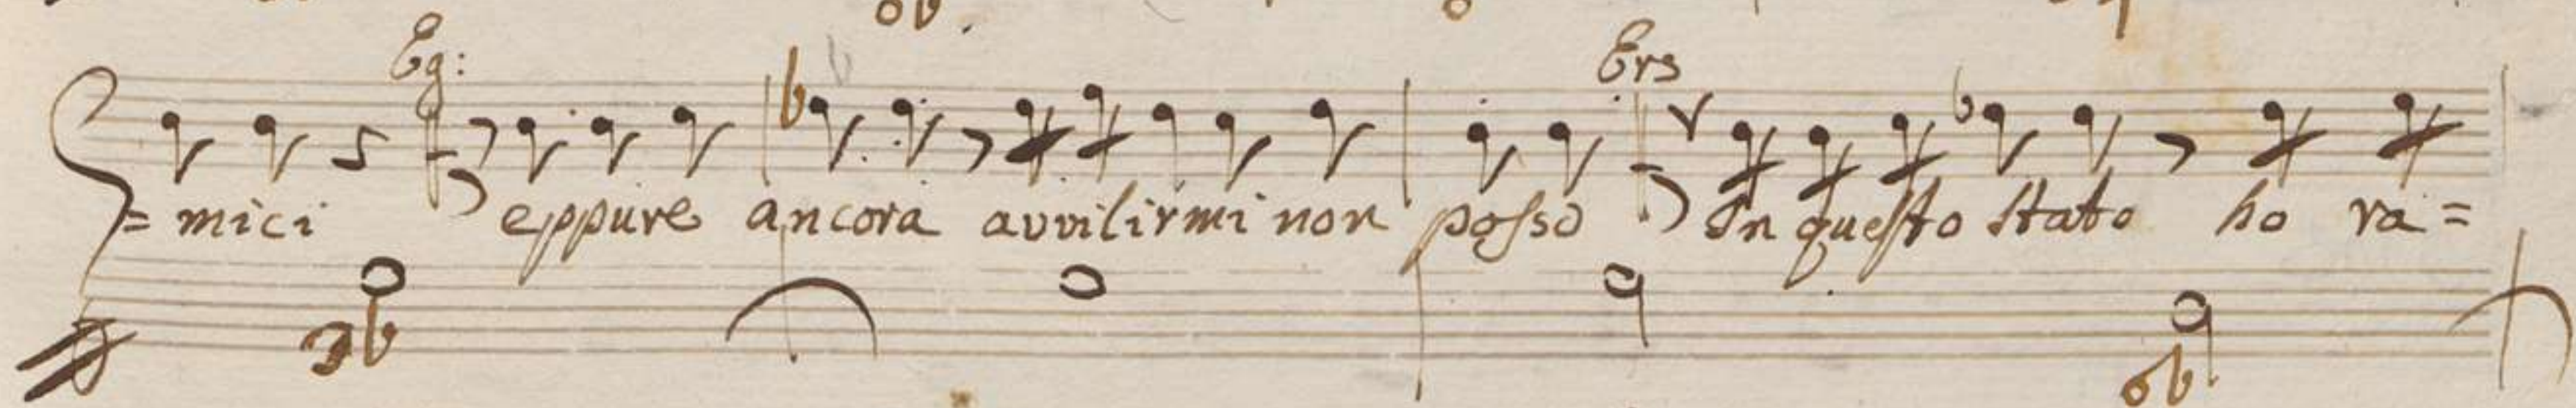 Eg: Ers
=mici eppure ancora avvilirmi non posso In questo stato ho ra=